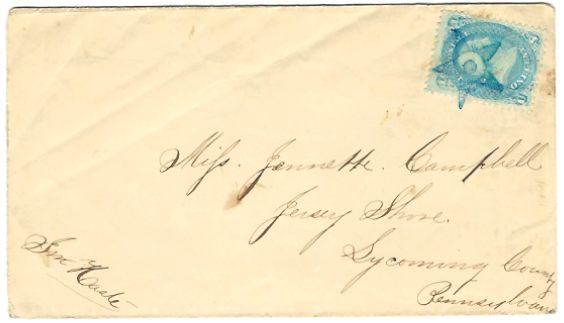 Miss. Jennette. Campbell
Jersey Shore.
Lycoming County
Pennsylvania
In Haste